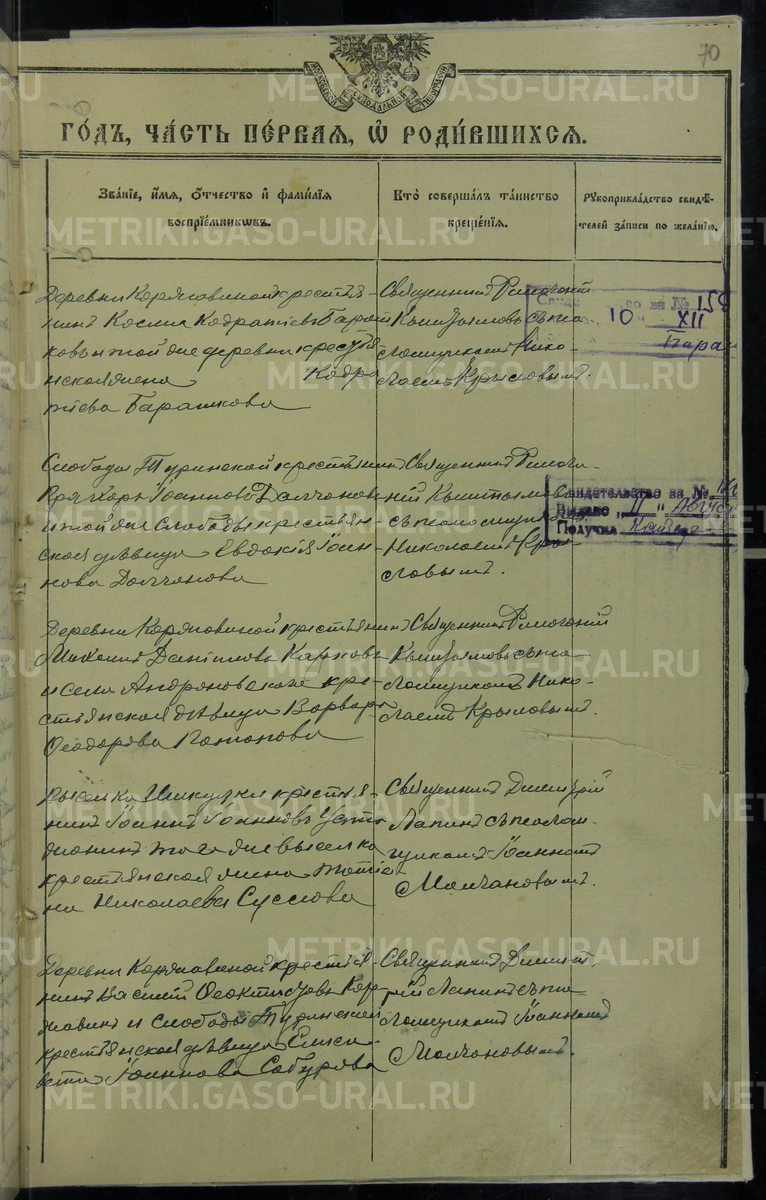 70
МОСКОВСКОЙ СѴНОДАЛЬНОЙ ТИПОГРАФІИ
ГОДЪ, ЧАСТЬ ПЕРВАЯ, Ѿ РОДИВШИХСЯ.
Званіе, имя, отчество и фамилія
воспріемниковъ.
Кто совершалъ таинство
крещенія.
Рукоприкладство свидѣ-
телей записи по желанію.
Деревни Коряковиной крестья-
нинъ Косма Кодратіевъ
и той же деревни кресть-
янская жена Кодра
тіева Барашкова
Священникъ
съ пса-
ломщикомъ Нико-
лаемъ Крыловымъ.
по за № 159
10 XII
Слободы Туринской крестьянинъ
Іоанновъ Долчановъ
и той же слободы крестьян-
ская дѣвица Евдокія Іоан-
нова Долчанова
Священникъ
съ псаломщикомъ
Николаемъ Кры-
ловымъ.
Свидетельство за №
Выдано „11"
Получил
Деревни Коряковиной крестьянинъ
Михаилъ Даніиловъ
и села Андроновскаго кре-
стьянская дѣвица Варвара
Ѳеодорова Потапова
Священникъ
съ пса-
ломщикомъ Нико-
лаемъ Крыловымъ.
Выселка крестья-
нинъ Іоаннъ Іоанновъ
того же выселка
крестьянская жена Татіа-
на Николаева Суслова
Священникъ Димитрій
Лапинъ съ псалом-
щикомъ Іоанномъ
Молчановымъ.
Деревни Коряковиной крестья-
нинъ Василій Ѳеоктистовъ Коря-
ковинъ и слободы Туринской
крестьянская дѣвица Елиса-
вета Іоаннова Сабурова
Священникъ Димит-
рій Лапинъ съ пса-
ломщикомъ Іоанномъ
Молчановымъ.
METRIKI.GASO-URAL.RU